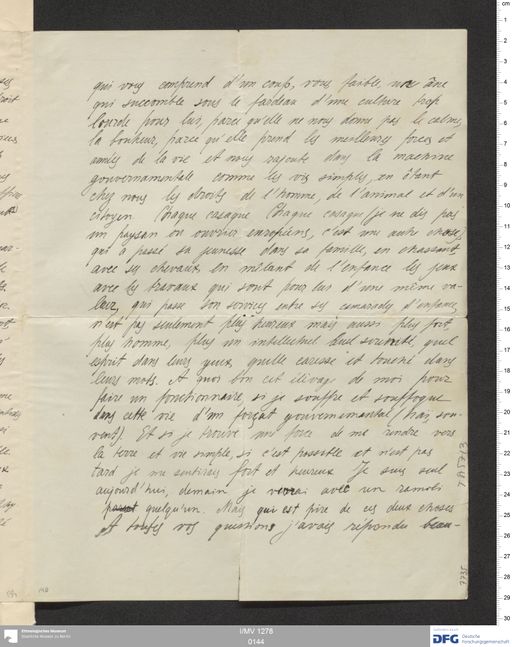 qui vous comprend d'un coup, vous faible, une âme
qui succombe sous le fardeau d'une culture trop
lourde pour lui, parce qu'elle ne nous donne pas le calme,
la bonheur, parce qu'elle prend les meilleures forces et
années de la vie et nous rajoute dans la machine
gouvernementale comme les vis simples, en ôtant
chez nous les droits de l'homme, de l'animal et d'un
citoyen. Chaque casaque (je ne dis pas
un paysan ou ouvrier européens, c'est une autre chose)
qui a passé sa jeunesse dans sa famille, en chassant
avec ses chevaux en mêlant de l'enfance les jeux
avec les travaux qui sont pour lui d'une même va-
leur, qui passe son service entre ses camarades d'enfance,
n'est pas seulement plus heureux mais aussi plus fort
plus homme, plus un intellectuel. Quel sérénité, quel
esprit dans leurs yeux, quelle caresse et touché dans
leurs mots. A quoi bon cet élevage de moi pour
faire un fonctionnaire, si je souffre et souffoque
dans cette vie d'un forçat gouvernemental (trais, sou-
vent). Et si je trouve une force de me rendre vers
la terre et vie simple, si c'est possible et n'est pas
tard je me sentirais fort et heureux. Je suis seul
aujourd'hui, demain je verrai avec un ramoli
quelqu'un. Mais qui est pire de ces deux choses
A toutes vos questions j'avais répondu beau-
7735
I/MV 1278
0144
Ethnologisches Museum
Staatliche Museen zu Berlin
DFG Deutsche
Forschungsgemeinschaft